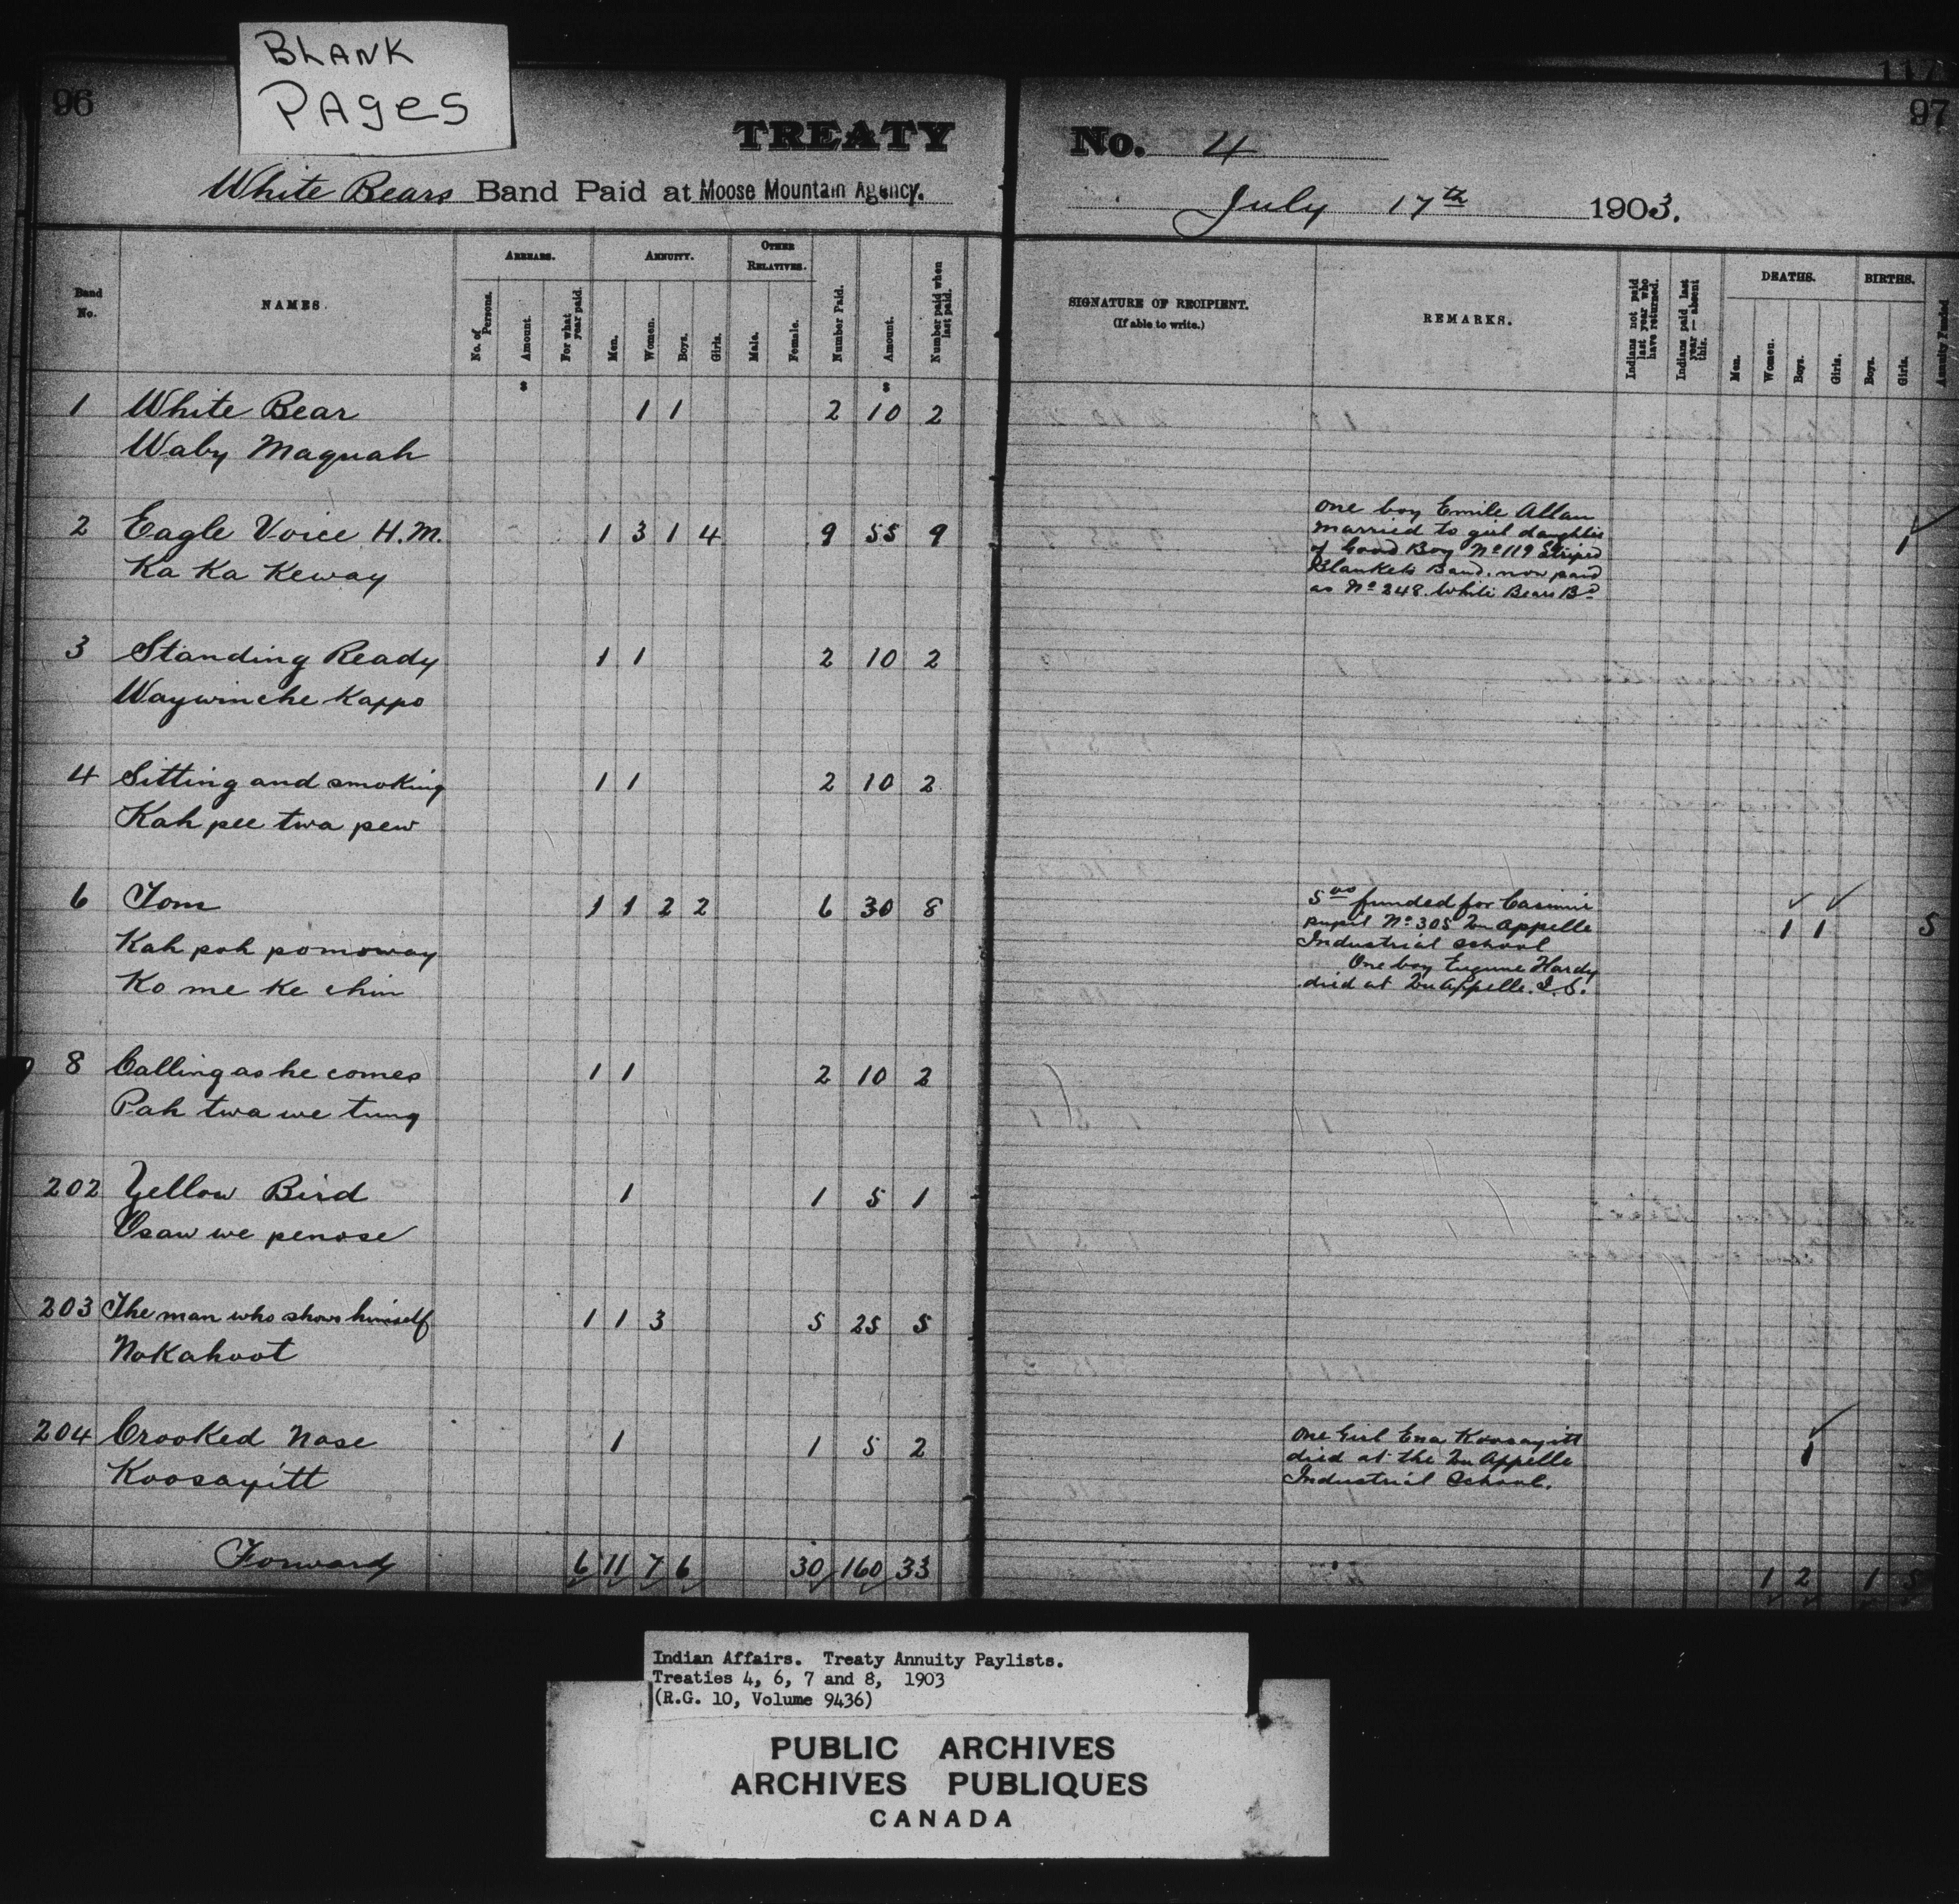 BLANK
PAGES
96
117
97
TREATY No. 4
White Bears Band Paid at Moose Mountain Agency. July 17th 1903.
Band No.
NAMES.
ARREARS.
No. of Persons.
Amount.
For what year paid.
ANNUITY.
Men.
Women.
Boys.
Girls.
OTHER RELATIVES.
Male.
Female.
Number Paid.
Amount.
Number paid when last paid.
SIGNATURE OF RECIPIENT.
(If able to write.)
REMARKS.
Indians not paid last year who have returned.
Indians paid last year — absent this.
DEATHS.
Men.
Women.
Boys.
Girls.
BIRTHS.
Boys.
Girls.
Annuity Funded
$ $
1 White Bear 1 1 2 10 2
Waby Maquah
2 Eagle Voice H.M. 1 3 1 4 9 55 9 1
Ka Ka Keway
one boy Emile Allan
married to girl daughter
of Good Boy No 119 Striped
Blankets Band. now paid
as No 248. White Bears Bd
3 Standing Ready 1 1 2 10 2
Waywinche Kappo
4 Sitting and smoking 1 1 2 10 2
Kah pee twa pew
6 Tom 1 1 2 2 6 30 8 1 1 5
Kah pah pomoway
Ko me ke chin
5 00 funded for Casimir
pupil No 305 Qu Appelle
Industrial school
One boy Eugene Hardy
died at Qu Appelle. I. S.
8 Calling as he comes 1 1 2 10 2
Pah twa we tung
202 Yellow Bird 1 1 5 1
Osaw we penose
203 The man who shows himself 1 1 3 5 25 5
Nokahoot
204 Crooked Nose 1 1 5 2 1
Koosayitt
One Girl Ena Koosayitt
died at the Qu Appelle
Industrial School.
Forward 6 11 7 6 30 160 33 1 2 1 5
Indian Affairs. Treaty Annuity Paylists.
Treaties 4, 6, 7 and 8, 1903
(R.G. 10, Volume 9436)
PUBLIC ARCHIVES
ARCHIVES PUBLIQUES
CANADA